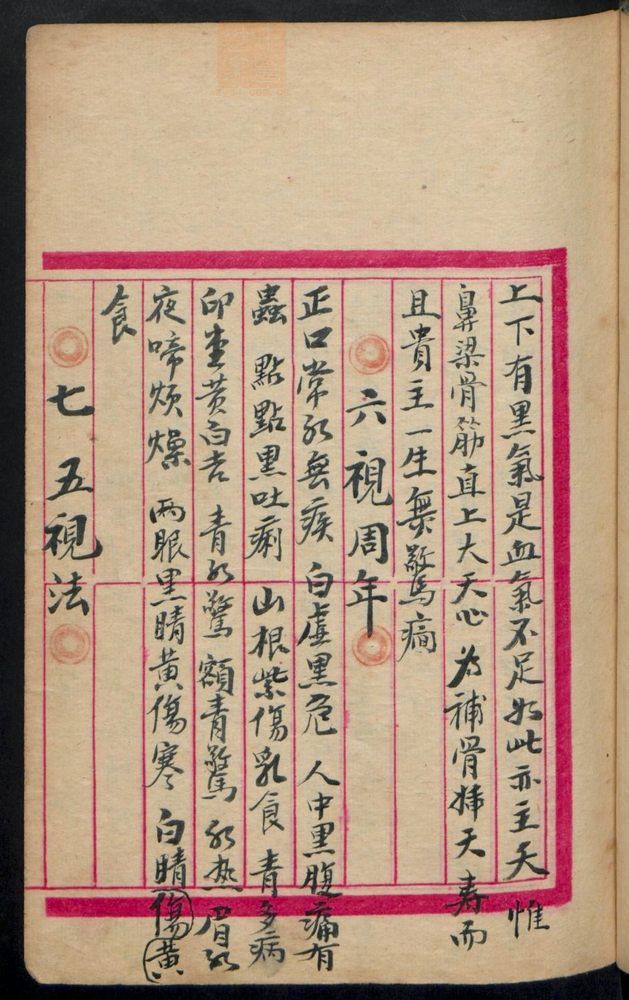 上下有黑氣是血氣不足如此亦主夭 惟
鼻梁骨筋直上大天心 為補骨挿天 壽而
且貴主一生無驚癇
六視周年
正口常紅無疾 白虛黑危 人中黑腹痛有
蟲 點點黑吐痢 山根紫傷乳食 青多病
印堂黃白吉 青紅驚 額青驚 紅热 眉紅
夜啼煩燥 兩眼黑晴黃傷寒 白晴傷黃
食
七 五視法